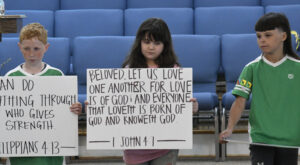 AN DO
YTHING THROUGH
WHO GIVES
STRENGTH
LIPPIANS 4:13
BELOVED, LET US LOVE
ONE ANOTHER FOR LOVE
IS OF GOD; AND EVERYONE
THAT LOVETH IS BORN OF
GOD AND KNOWETH GOD
1 JOHN 4:7